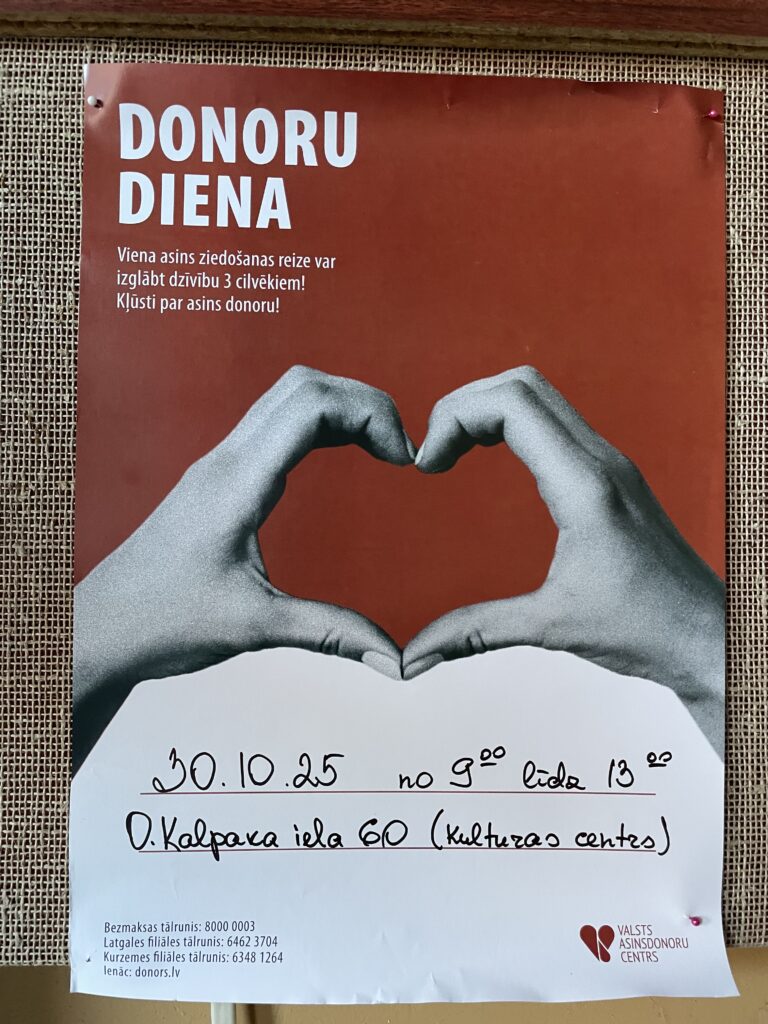 DONORU
DIENA
Viena asins ziedošanas reize var
izglābt dzīvību 3 cilvēkiem!
Kļūsti par asins donoru!
30.10.25 no 9⁰⁰ līdz 13⁰⁰
O.Kalpaka iela 60 (Kultūras centrs)
Bezmaksas tālrunis: 8000 0003
Latgales filiāles tālrunis: 6462 3704
Kurzemes filiāles tālrunis: 6348 1264
Ienāc: donors.lv
VALSTS
ASINSDONORU
CENTRS